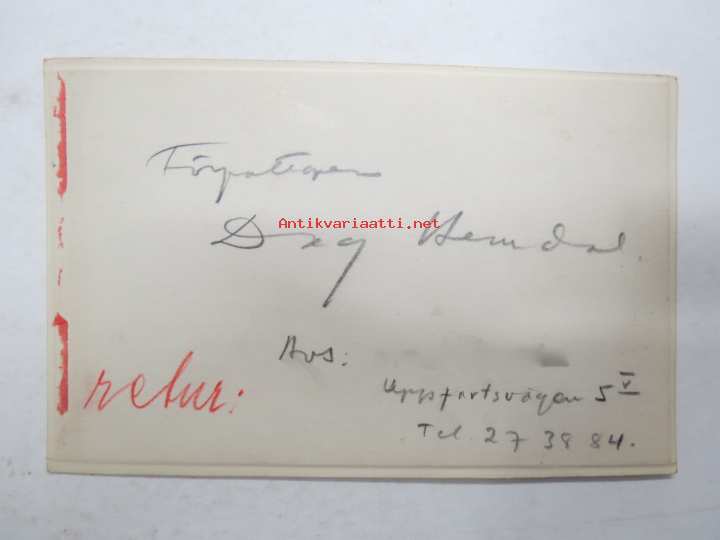 Författaren
Antikvariaatti.net
Dag Hemdal.
Avs:
retur:
Uppfartsvägen 5 V
Tel. 27 38 84.